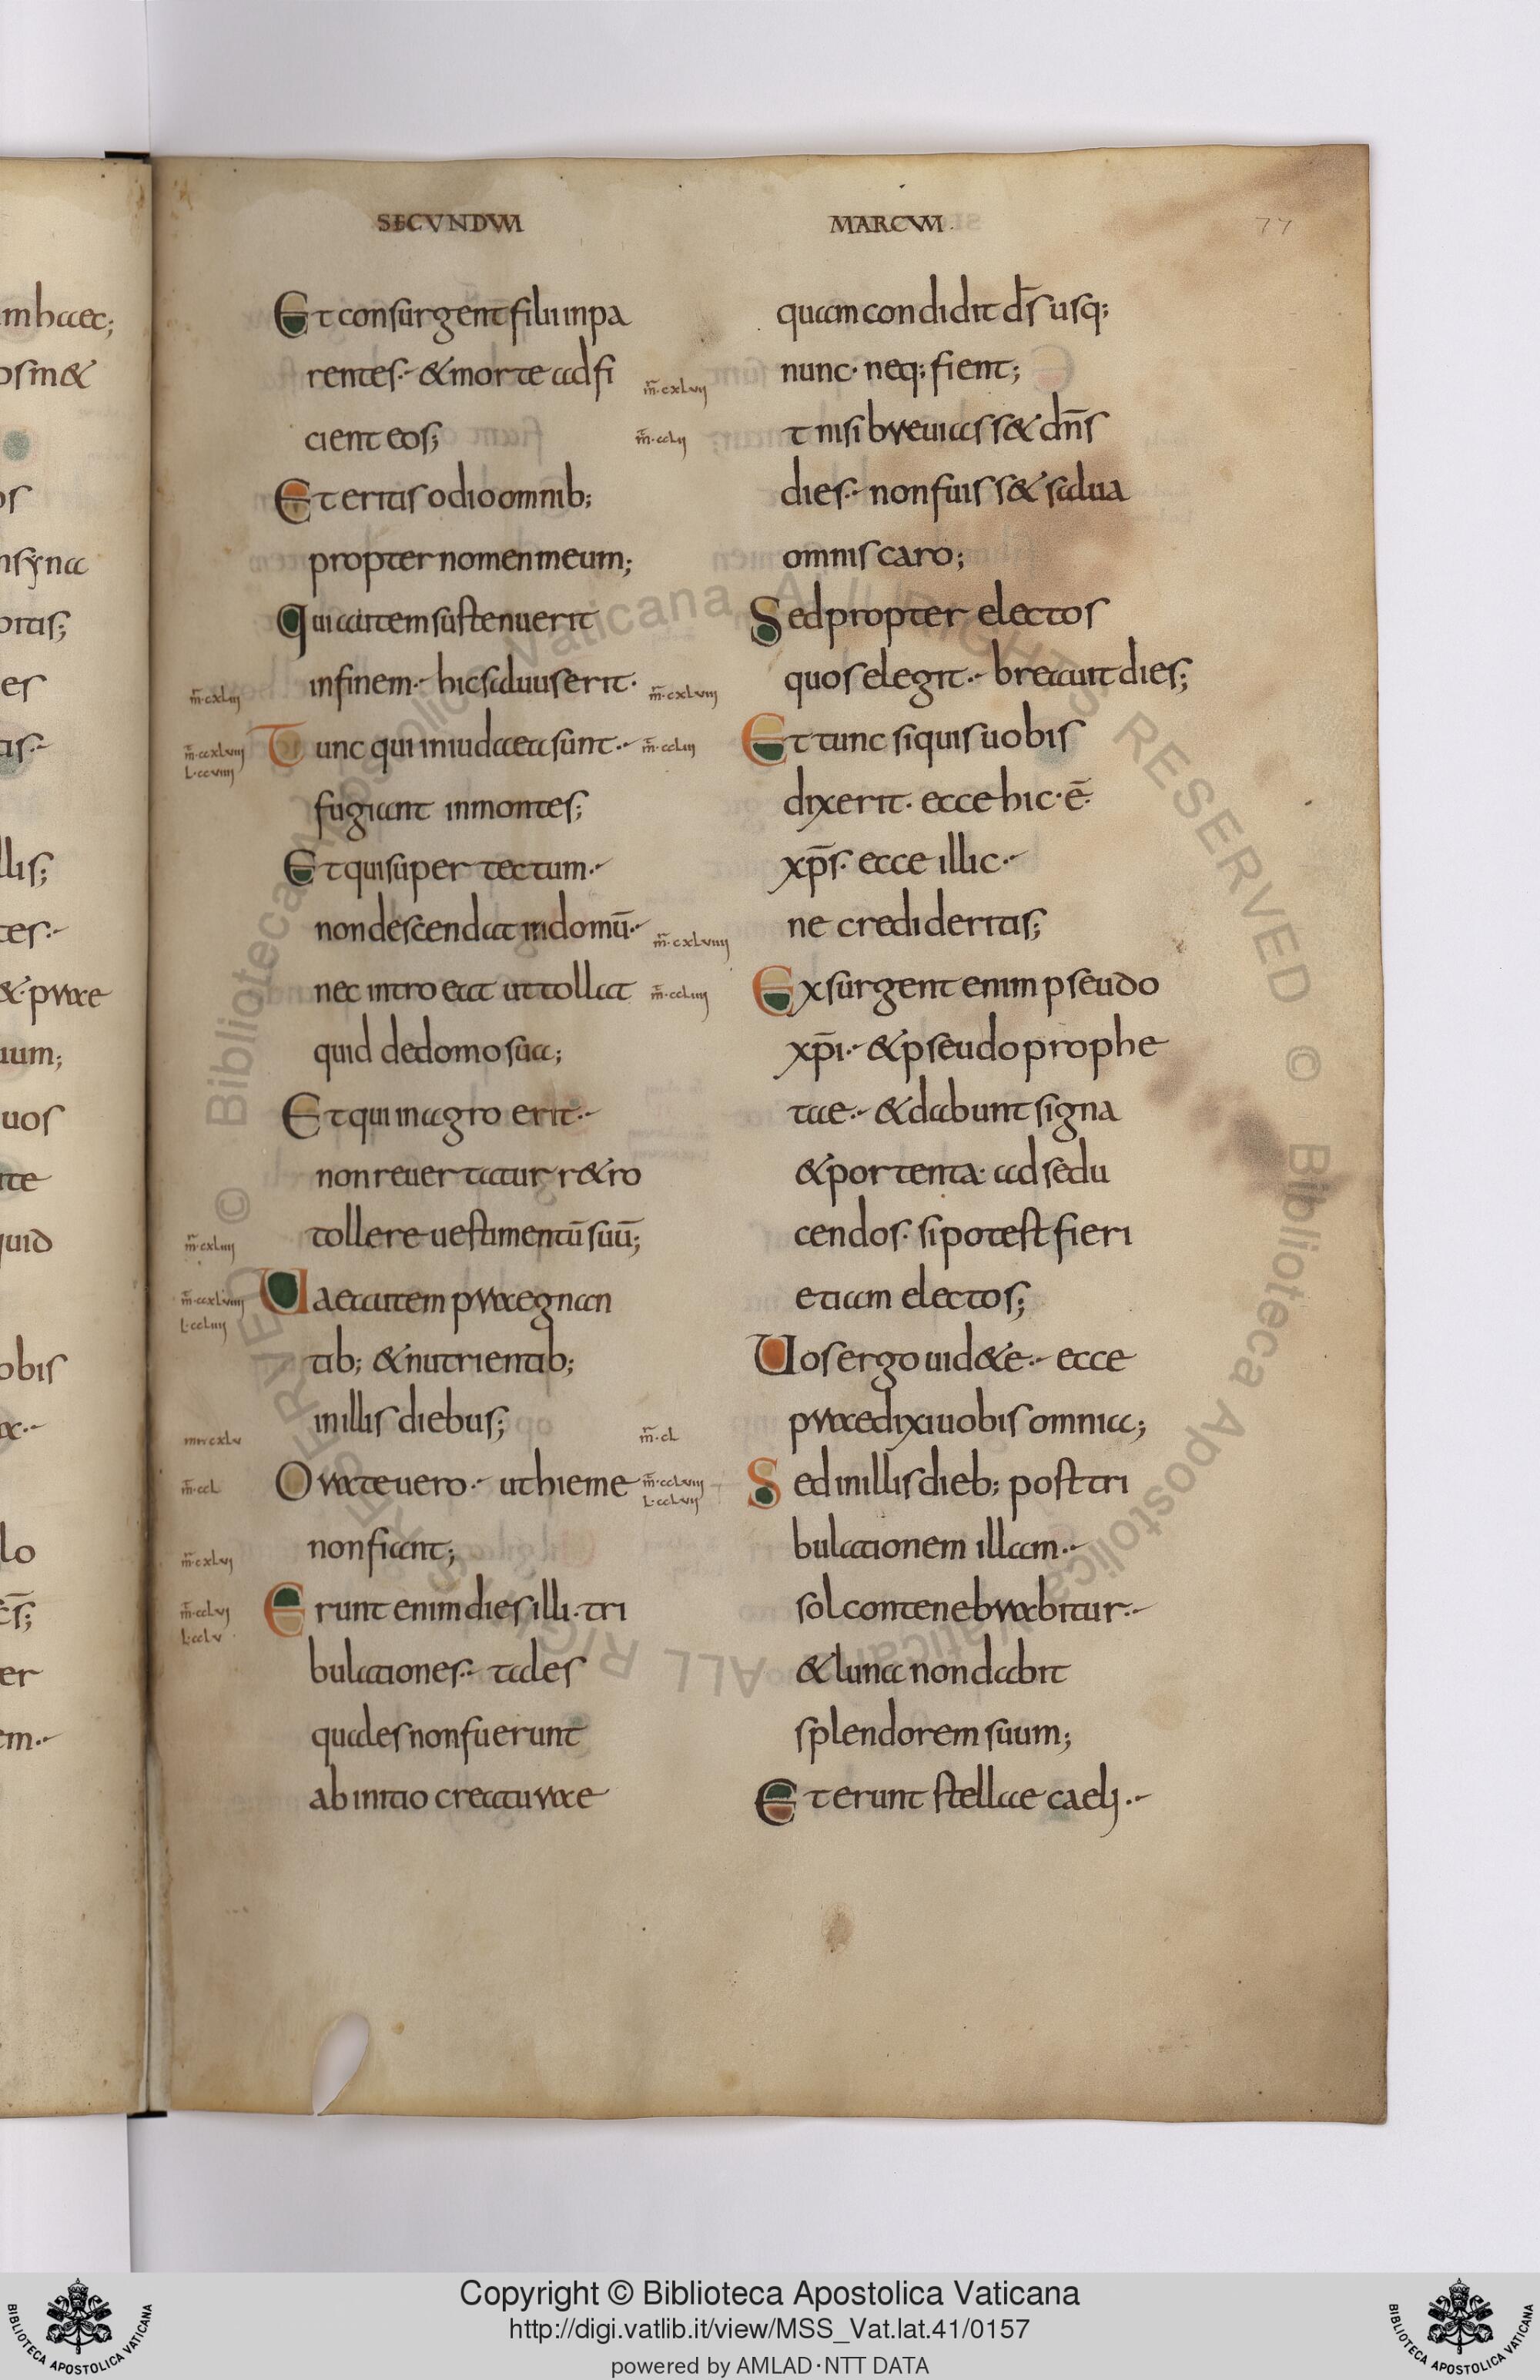 SECVNDVM MARCVM
77
Et consurgent filii inpa
rentes·- & morte adfi
cient eos;
Et eritis odio omnib;
propter nomen meum;
Qui autem sustenuerit
infinem·- hic saluus erit·
Tunc qui iniudaea sunt·-
fugiant inmontes;
Et qui super tectum·-
non descendat indomū·-
nec introeat ut tollat
quid dedomo sua;
Et qui in agro erit·-
non reuertatur r&ro
tollere uestimentū suū;
Uae autem praegnan
tib; & nutrientib;
inillis diebus;
Orate uero·- ut hieme
non fiant;
Erunt enim dies illi· tri
bulationes·- tales
quales non fuerunt
ab initio creaturae
quam condidit d̄s usq;
nunc· neq; fient;
t nisi breuiass& dn̄s
dies·- non fuiss& salua
omnis caro;
Sed propter electos
quos elegit·- breauit dies;
Et tunc siquis uobis
dixerit· ecce hic· ē·
xp̄s· ecce illic·-
ne credideritis;
Exsurgent enim pseudo
xp̄i·- & pseudo prophe
tae·- & dabunt signa
& portenta· ad sedu
cendos· si potest fieri
etiam electos;
Uos ergo uid&e·- ecce
praedixi uobis omnia;
Sed inillis dieb; post tri
bulationem illam·-
sol contenebrabitur·-
& luna non dabit
splendorem suum;
Et erunt stellae caeli·-
Copyright © Biblioteca Apostolica Vaticana
http://digi.vatlib.it/view/MSS_Vat.lat.41/0157
powered by AMLAD·NTT DATA
BIBLIOTECA APOSTOLICA VATICANA
BIBLIOTECA APOSTOLICA VATICANA